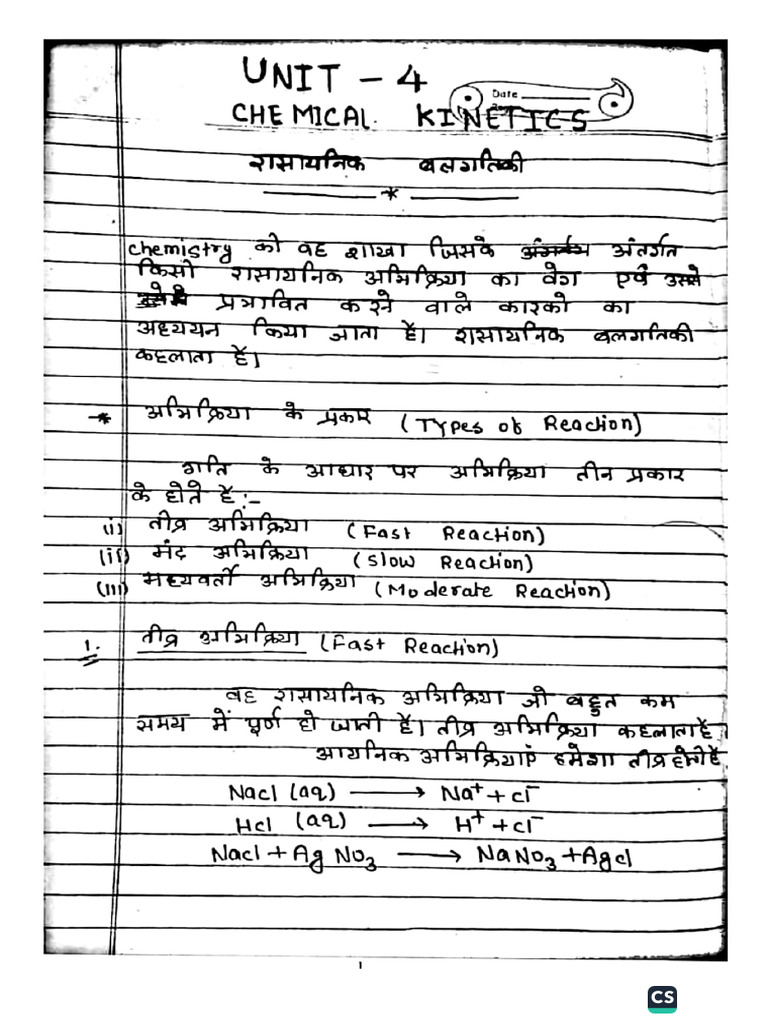 UNIT - 4
Date
CHEMICAL KINETICS
रासायनिक बलगतिकी
*
chemistry की वह शाखा जिसके अंतर्गत
किसी रासायनिक अभिक्रिया का वेग एवं उससे
प्रभावित करने वाले कारको का
अध्ययन किया जाता है। रासायनिक बलगतिकी
कहलाता है।
* अभिक्रिया के प्रकार (Types of Reaction)
गति के आधार पर अभिक्रिया तीन प्रकार
के होते है:-
(i) तीव्र अभिक्रिया (Fast Reaction)
(ii) मंद अभिक्रिया (Slow Reaction)
(iii) मध्यवर्ती अभिक्रिया (Moderate Reaction)
1. तीव्र अभिक्रिया (Fast Reaction)
वह रासायनिक अभिक्रिया जो बहुत कम
समय में पूर्ण हो जाती है। तीव्र अभिक्रिया कहलाता है
आयनिक अभिक्रियाएं हमेशा तीव्र होती है
Nacl (aq) ⟶ Na⁺ + cl⁻
Hcl (aq) ⟶ H⁺ + cl⁻
Nacl + Ag NO₃ ⟶ NaNO₃ + Agcl
1
CS